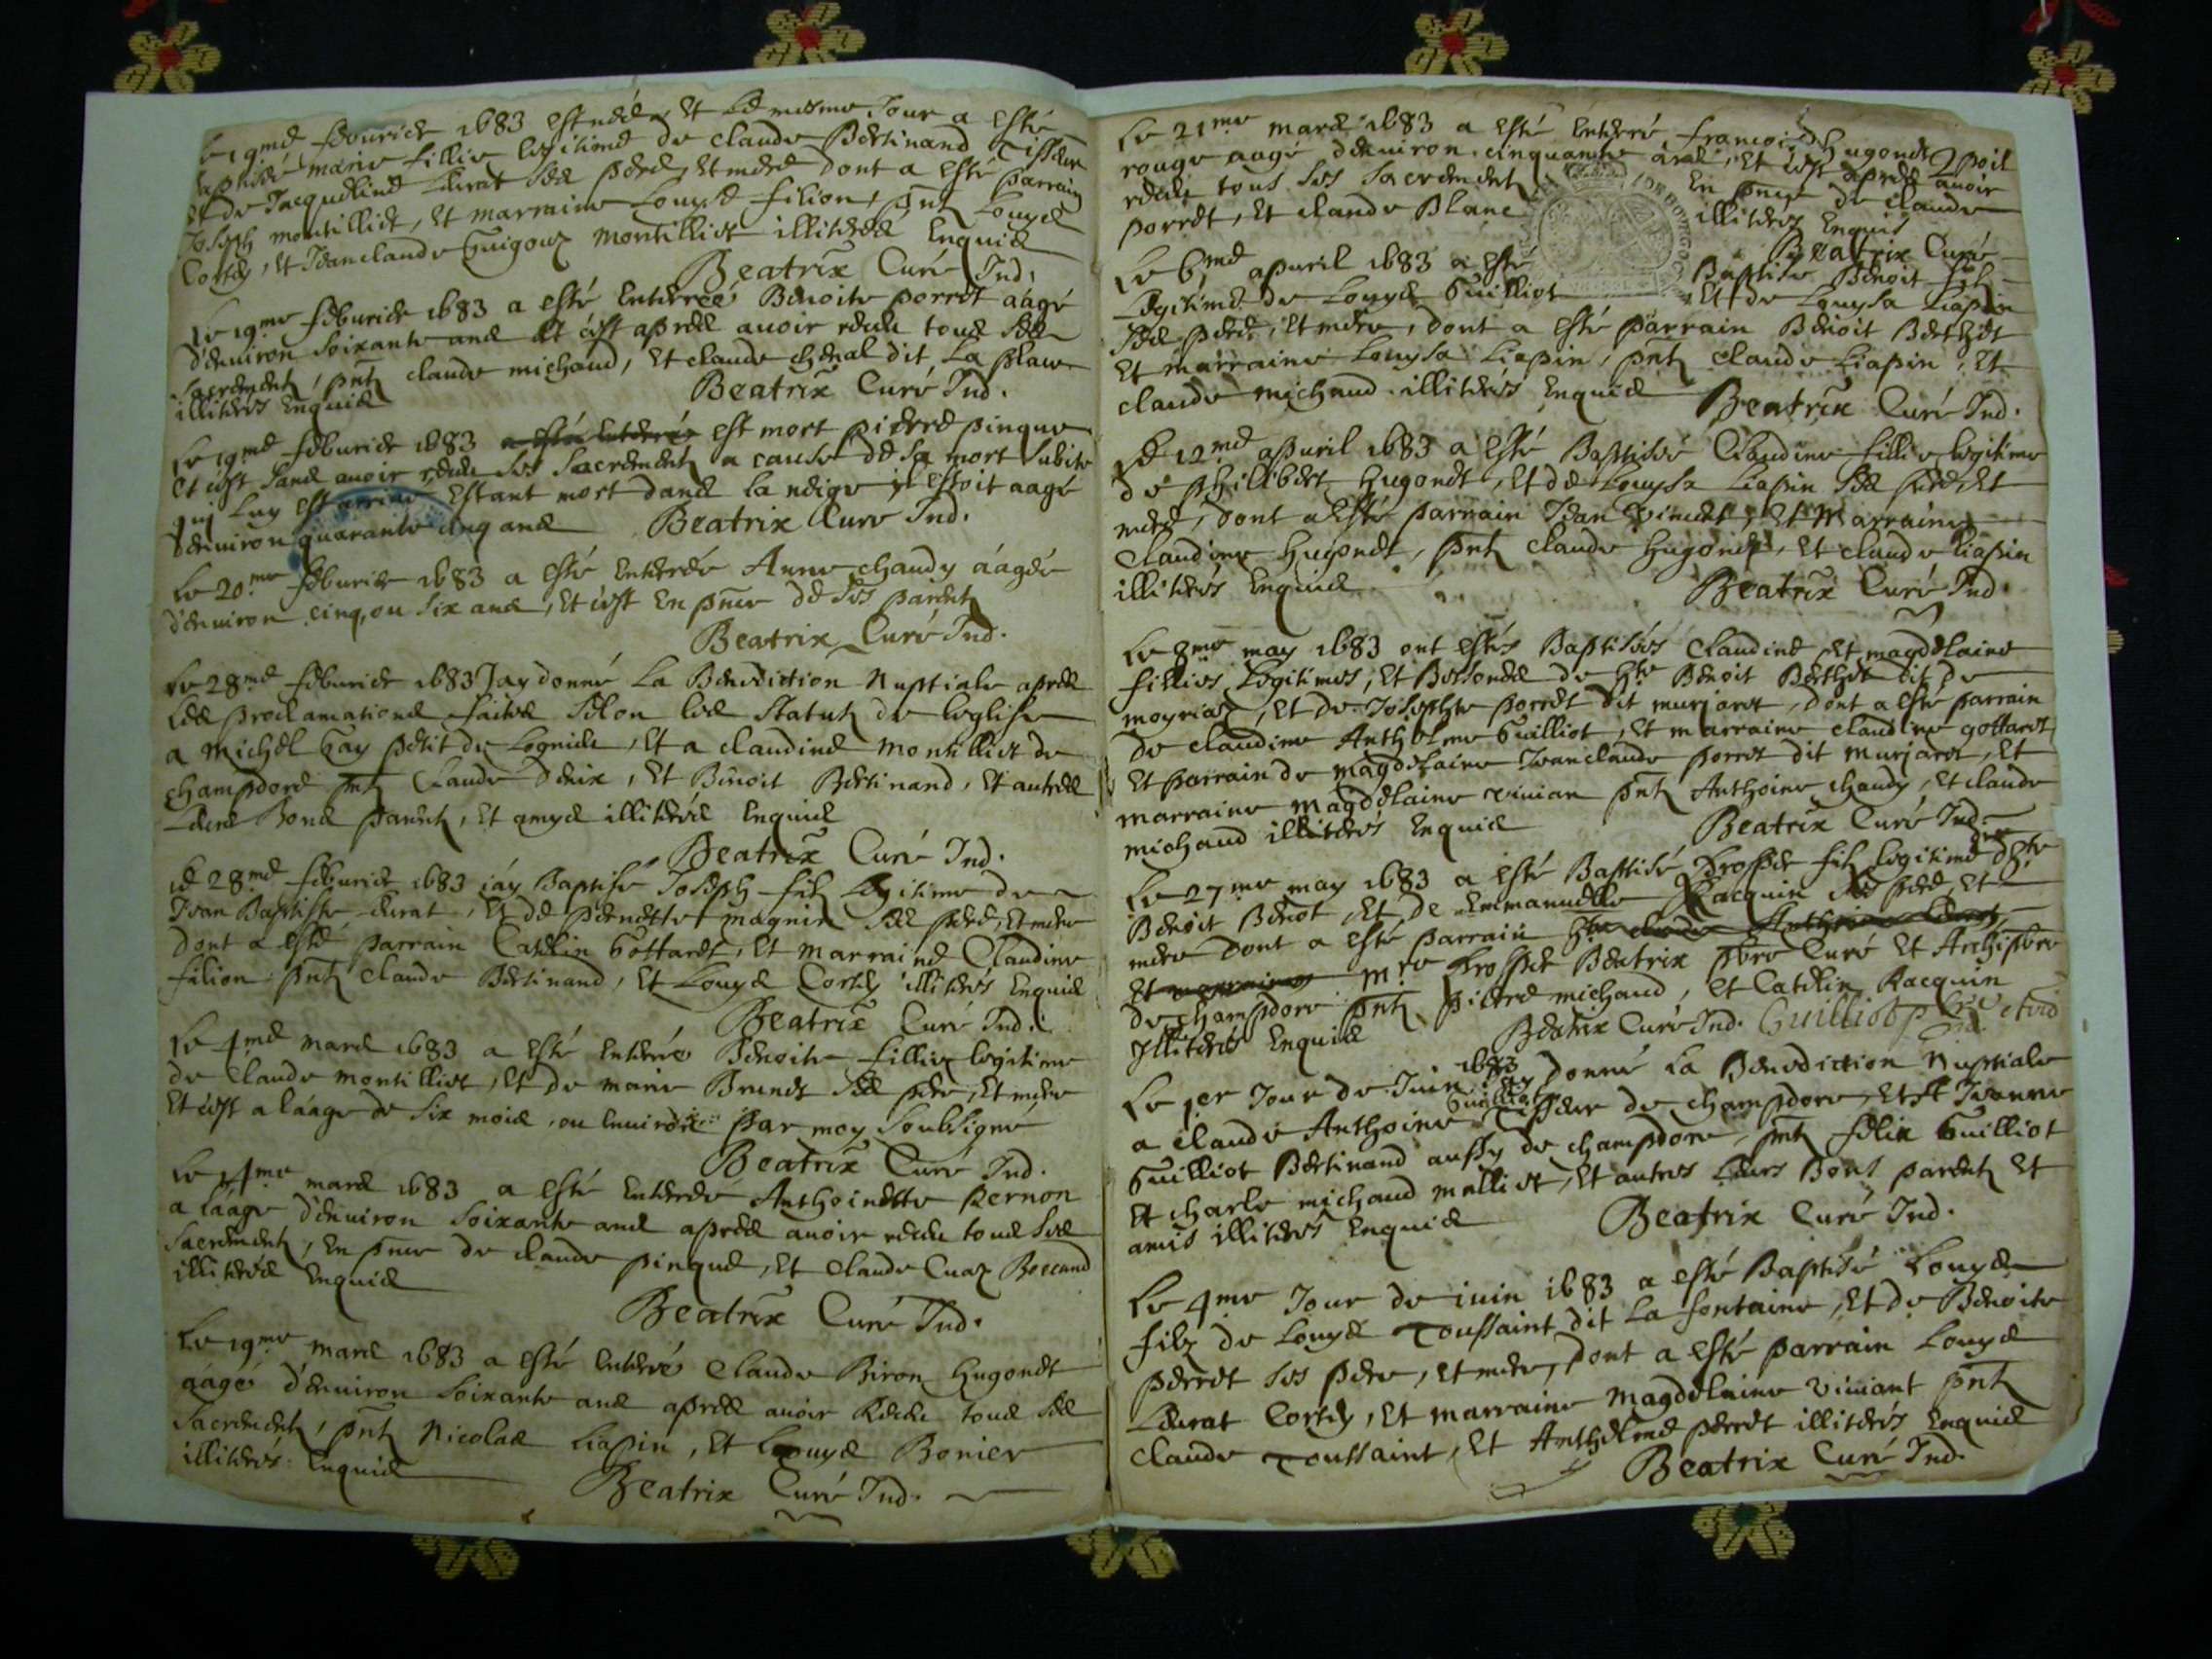 Le 19me feburier 1683 est née, et le mesme Jour a esté
baptisée marie fillie legitime de claude Bertinand Tisseur
et de Jacqueline Lerat ses pere, et mere dont a esté parrain
Joseph montilliet, et marraine Louyse filion, pnts Louys
Cortey, et Jean claude Guigouz montilliet illiteres Enquis
Beatrix Curé Ind.
Le 19me feburier 1683 a esté Enterreé Benoite porret aágé
d'enuiron soixante ans et c'est apres auoir receu tous ses
sacrements, pnts claude michaud, et claude cheual dit La place
illiterés Enquis
Beatrix Curé Ind.
Le 19me feburier 1683 est mort pierre pinque
et c'est sans auoir receu ses sacrements a cause de sa mort subite
qui Luy est arriué Estant mort dans la neige il estoit aagé
d'enuiron quarante cinq ans Beatrix Curé Ind.
Le 20me feburier 1683 a esté Enterrée Anne chaudy aágée
d'enuiron cinq, ou six ans, et c'est En pnce de ses parents
Beatrix Curé Ind.
Le 28me feburier 1683 Jay donné La Benediction Nuptiale apres
Les proclamations faites selon les statuts de leglise
a Michel Gay petit de Logniele, et a claudine montilliet de
champdore pnts Claude Denix, et Benoit Bertinand, et autres
Leurs Bons parents, et amys illiterés Enquis
Beatrix Curé Ind.
Le 28me feburier 1683 iáy Baptisé Joseph fils Legitime de
Jean Baptiste Lerat, et de pernette magnin ses pere, et mere
dont a esté parrain Catelin Gottaret, et marraine Claudine
filion pnts claude Bertinand, et Louys Cortey illiterés Enquis
Beatrix Curé Ind.
Le 4me mars 1683 a esté Enterrée Benoite fillie legitime
de Claude montilliet, et de marie Brunet ses pere, et mere
et c'est a láage de six mois, ou Enuiron Par moy Soubsigné
Beatrix Curé Ind.
Le 14me mars 1683 a esté Enterrée Anthoinette Pernon
a láage d'enuiron soixante ans apres auoir receu tous ses
Sacrements, En pnce de claude pinque, et Claude Cuaz Boccand
illiterés Enquis
Beatrix Curé Ind.
Le 19me mars 1683 a esté Enterré Claude Biron Hugonet
aágé d'enuiron soixante ans apres auoir Receu tous ses
Sacrements, pnts Nicolas Liapin, et Louys Bonier
illiterés Enquis
Beatrix Curé Ind.
Le 21me mars 1683 a esté Enterré francois Hugonet poil
rouge aagé denuiron cinquante ans, et c'est apres auoir
receu tous ses sacrements En pnce de claude
porret, et claude Blanc illiteres Enquis
Beatrix Curé
Le 6me apuril 1683 a esté Baptisé Benoit fils
Legitime de Louys Guilliot et de Louysa Liapin
ses pere, et mere, dont a esté parrain Benoit Berthet
et marraine Louysa Liapin, pnts claude Liapin, et
claude michaud illiterés Enquis Beatrix Curé Ind.
Le 12me apuril 1683 a esté Baptisée Claudine fillie legitime
de philibert Hugonet, et de Louysa Liapin ses pere, et
mere, dont a esté parrain Jean, et Marraine
Claudine Hugonet, pnts claude Hugonet, et claude liapin
illiterés Enquis
Beatrix Curé Ind.
Le 8me may 1683 ont estés Baptisées Claudine, et magdelaine
fillies Legitimes, et Bessones de hble Benoit Berthet dit de
moyriaz, et de Josephte porret dit murjaret, dont a esté parrain
de claudine Anthelme Guilliot, et marraine claudine gottaret
et parrain de magdelaine Jean claude porret dit murjaret, et
marraine magdelaine viuian pnts Anthoine chaudy, et claude
michaud illiterés Enquis
Beatrix Curé Ind.
Le 27me may 1683 a esté Baptisé Prosper fils legitime de
Benoit Benot, et de Emmanuelle Racquin ses pere, et
mere dont a esté parrain
Mre Prosper Beatrix pbre Curé et Archipbre
de champdore pnts pierre michaud, et Catelin Racquin
Illiterés Enquis Beatrix Curé Ind. Guilliot
Le 1er Jour de Juin 1683 Jay donné La Benediction Nuptiale
a claude Anthoine Guilliot Tisseur de champdore, et a Jeanne
Guilliot Bertinand aussy de champdore, pnts felix Guilliot
et charle michaud malliet, et autres Leurs Bons parents et
amis illiterés Enquis
Beatrix Curé Ind.
Le 4me Jour de iuin 1683 a esté Baptisé Louys
filz de Louys Toussaint dit La fontaine, et de Benoite
perret ses pere, et mere, dont a esté parrain Louys
Lerat Cortey, et marraine magdelaine viuiant pnts
Claude Toussaint, et Anthelme perret illiterés Enquis
Beatrix Curé Ind.